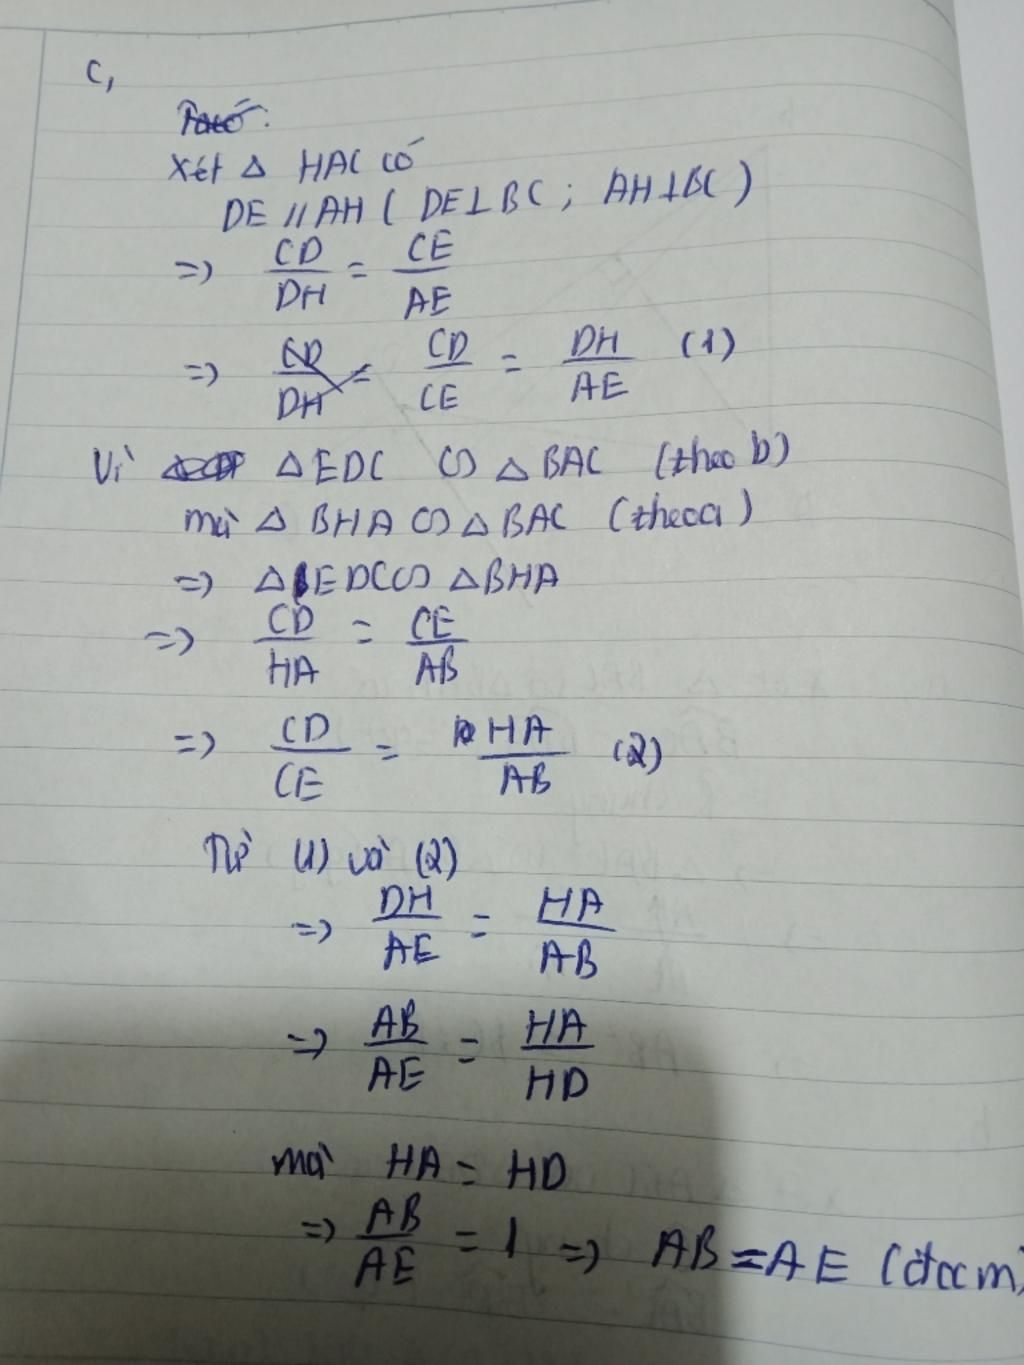 c,
Ta có:
Xét Δ HAC có
DE // AH ( DE⊥BC ; AH⊥BC )
=> CD/DH = CE/AE
=> CD/DH = CD/CE = DH/AE (1)
Vì Δ EDC ∽ Δ BAC (theo b)
mà Δ BHA ∽ Δ BAC (theo a)
=> Δ EDC ∽ Δ BHA
=> CD/HA = CE/AB
=> CD/CE = HA/AB (2)
Từ (1) và (2)
=> DH/AE = HA/AB
=> AB/AE = HA/HD
mà HA = HD
=> AB/AE = 1 => AB = AE (đccm)